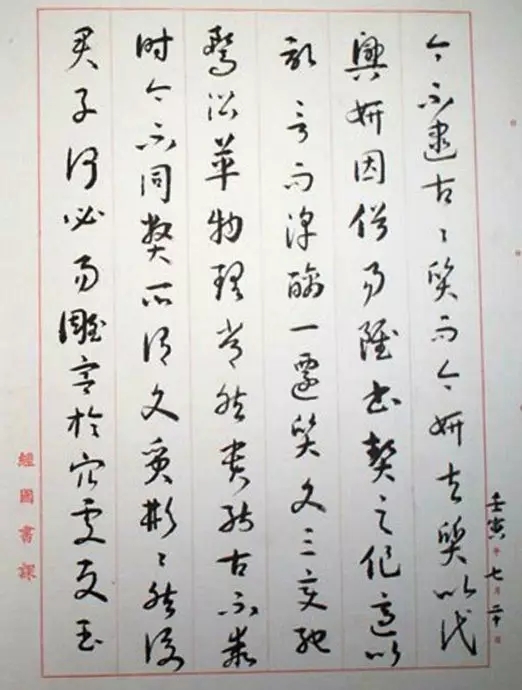 今不逮古々質而今妍夫質以代
興妍因俗易雖書契之作適以
記言而淳醨一遷質文三變馳
騖沿革物理常然貴能古不乖
時今不同弊所謂文質彬々然後
君子何必易雕宮於穴處反玉
壬寅年七月二十日
經國書課